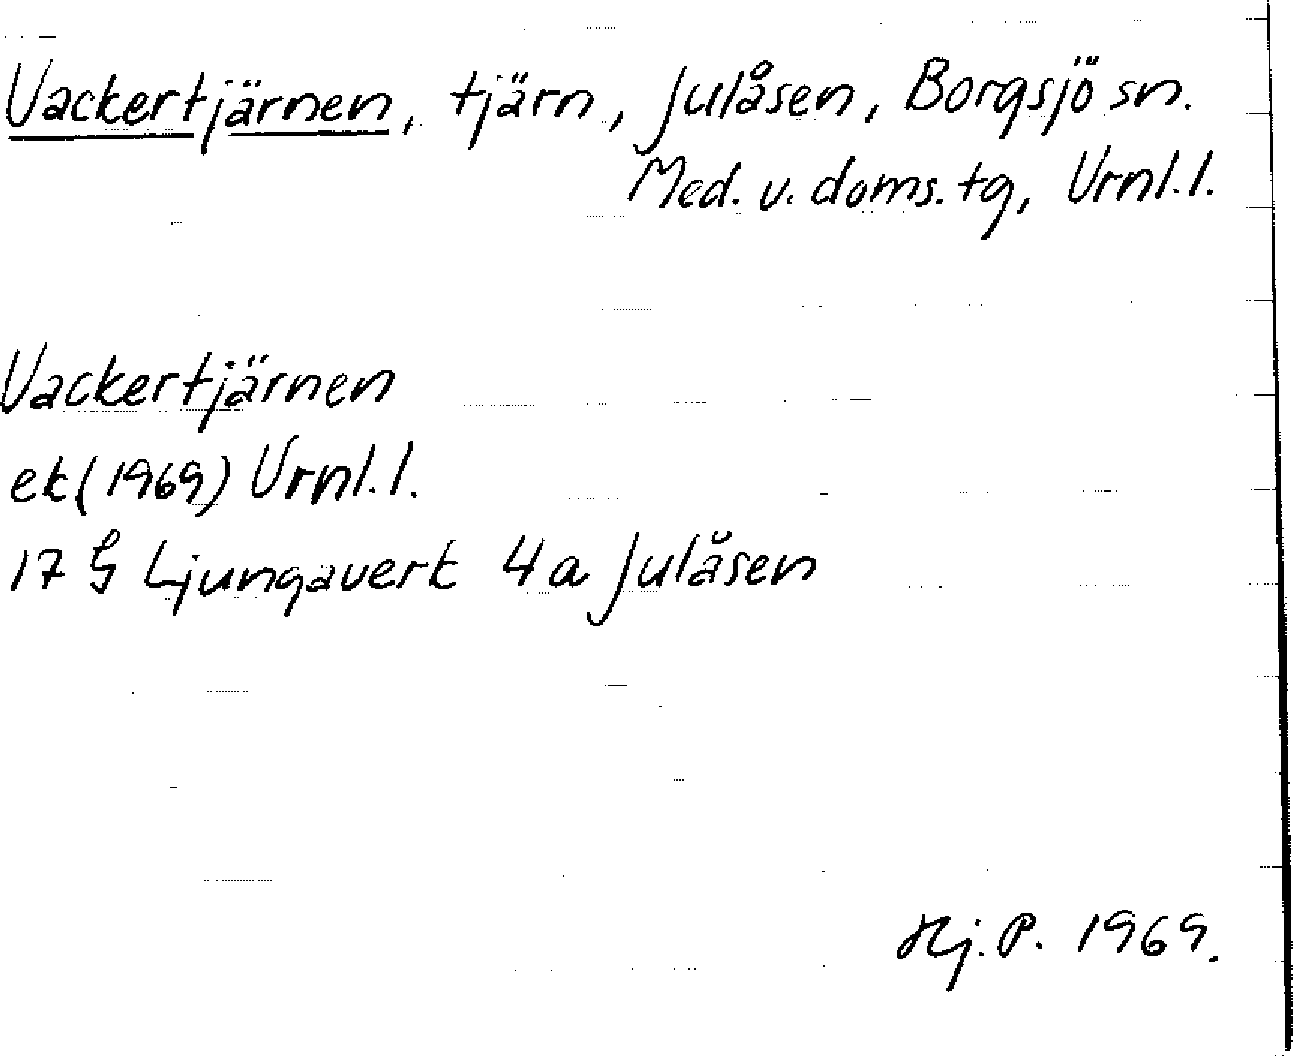 Vackertjärnen, tjärn, Julåsen, Borgsjö sn.
Med. v. doms. tg, Vrnl. l.
Vackertjärnen
ek (1969) Vrnl. l.
17 G Ljungaverk 4a Julåsen
Hj. P. 1969.